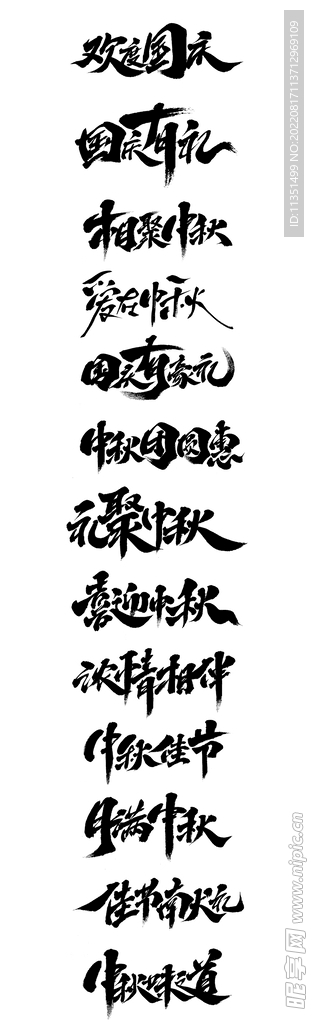 欢度国庆
国庆有礼
相聚中秋
爱在中秋
国庆有豪礼
中秋团圆惠
礼聚中秋
喜迎中秋
浓情相伴
中秋佳节
月满中秋
中秋味之道
ID:11351499 NO:20220817113712969109
昵享网 www.nipic.cn